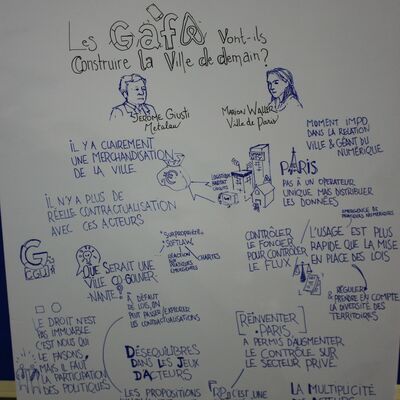 Les GAFA vont-ils
Construire la Ville de demain?
Jérôme Giusti
Metalaw
Marion Waller
Ville de Paris
Moment impo.
dans la relation
ville & géant du
numérique.
Il y a clairement
une merchandisation
de la ville.
Logistique
Habitat
Circuits
PARIS
Pas à un operateur
unique mais distribuer
les données
Il n'y a plus de
réelle contractualisation
avec ces acteurs
Émergence de
pratiques numériques
L'usage est plus
rapide que la mise
en place des lois
Contrôler
le foncier
pour contrôler
le flux
Surpropriété
Softlaw
Réaction aux
pratiques
émergentes
Chartes
G.
CGU
Que serait une
ville co-gouver-
nante?
À défaut
de lois, on
peut passer/explorer
les contractualisations
Réguler
& prendre en compte
la diversité des
territoires
Le droit n'est
pas immuable
c'est nous qui
le faisons,
mais il faut
la participation
des politiques
Réinventer
Paris
a permis d'augmenter
le contrôle sur
le secteur privé.
Déséquilibres
dans les jeux
d'acteurs
Les propositions
c'est une
La multiplicité